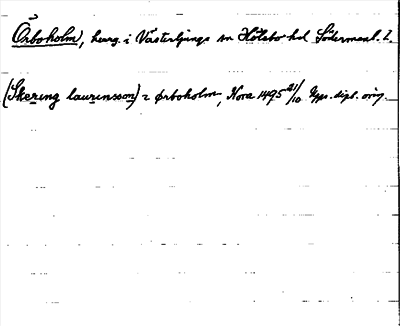 Örboholm, herrg. i Västerljungs sn Hölebo hd. Södermanl. l.
(Skering laurensson) i ørboholm, Nora 1495 21/10 Upps. dipl. orig.